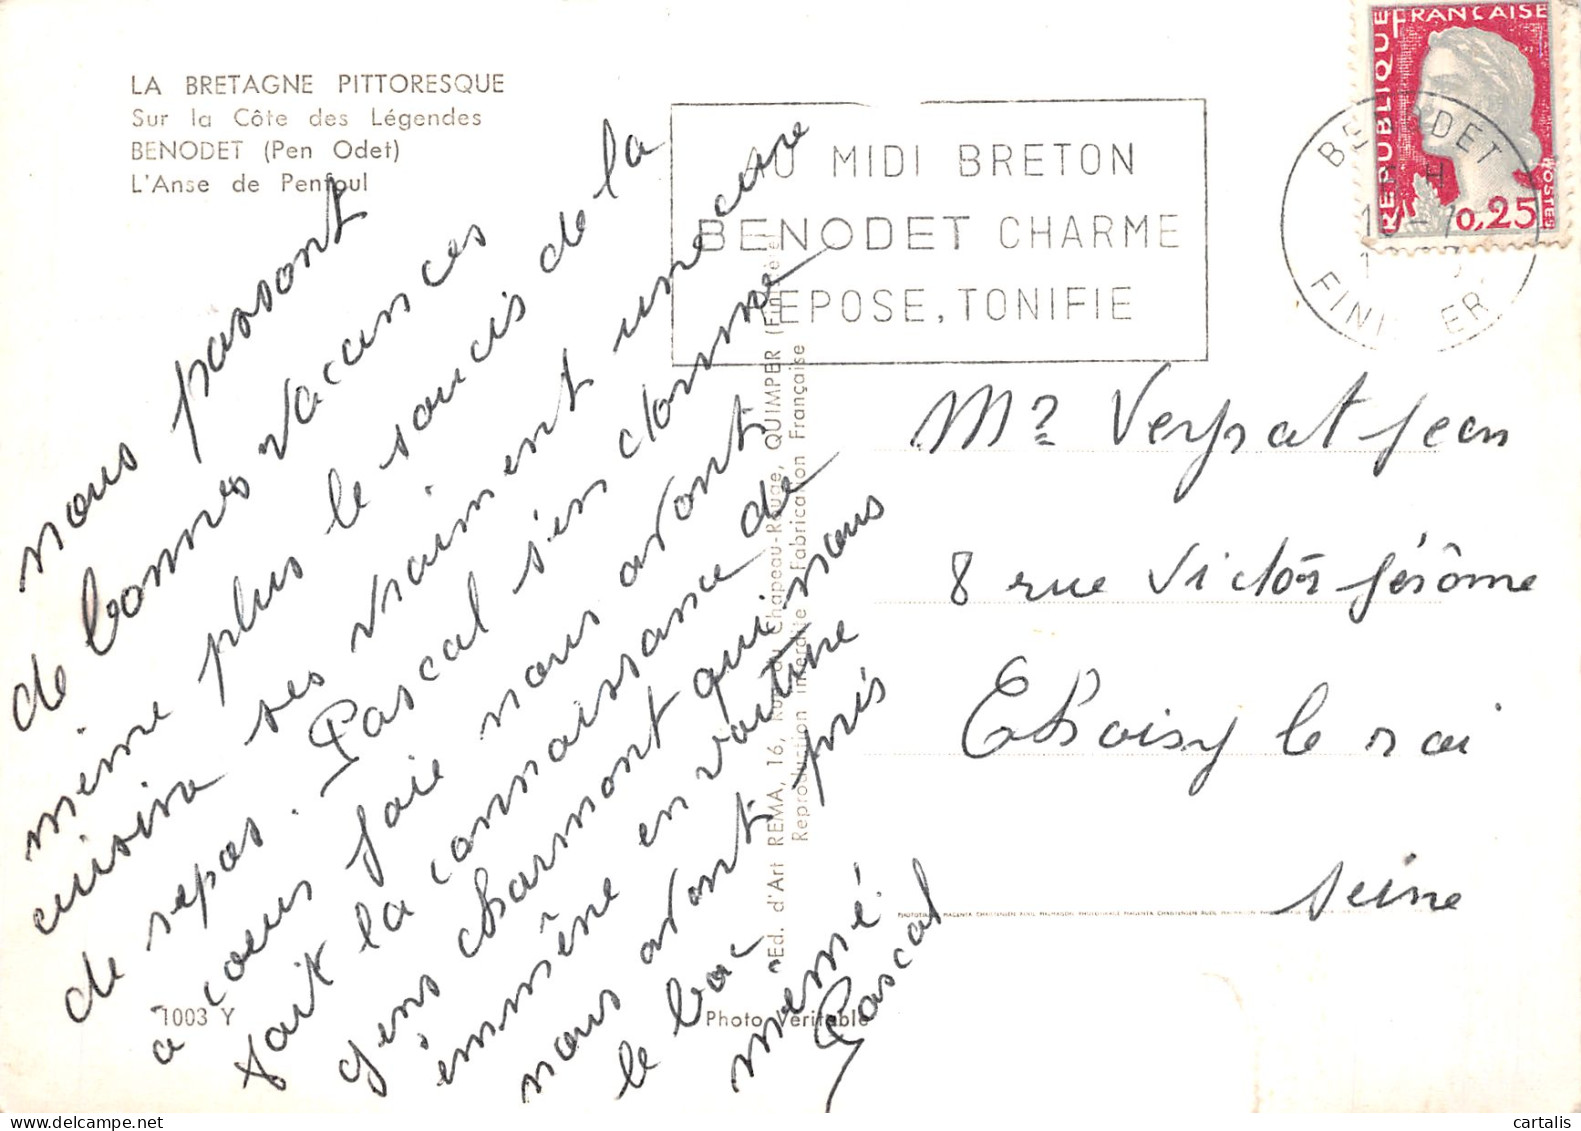 LA BRETAGNE PITTORESQUE
Sur la Côte des Légendes
BENODET (Pen Odet)
L'Anse de Penfoul
AU MIDI BRETON
BENODET CHARME
REPOSE, TONIFIE
REPUBLIQUE FRANÇAISE
POSTES
0,25
BENODET
FINISTERE
nous passont
de bonnes vacances
même plus le soucis de la
cuisine ses vraiment une cure
de repos. Pascal s'en donne
a coeur joie nous avont
fait la connaissance de
gens charmont qui nous
emmène en voiture
nous avont pris
le bac
mémé
Pascal
Mr Veyrat Jean
8 rue Victor Jérôme
Choisy le roi
Seine
Ed. d'Art REMA, 16, Rue du Chapeau-Rouge, QUIMPER (Finistère)
Reproduction interdite Fabrication Française
1003 Y
Photo Véritable
cartalis
delcampe.net